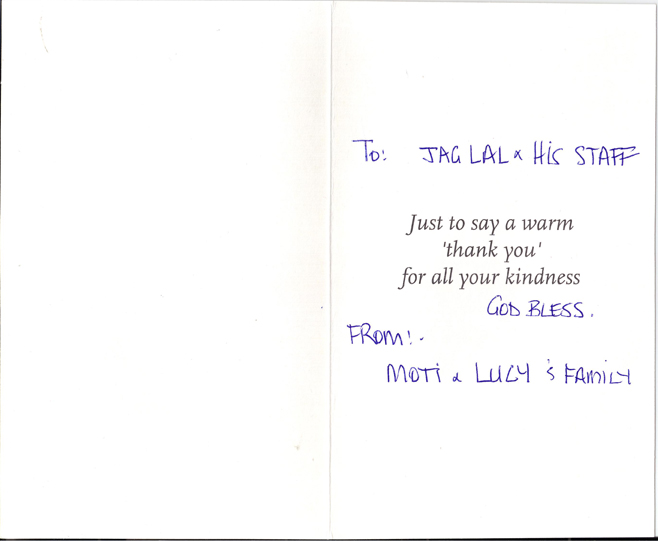 To: JAG LAL & HIS STAFF
Just to say a warm
'thank you'
for all your kindness
GOD BLESS.
FROM:-
MOTI & LUCY 'S FAMILY